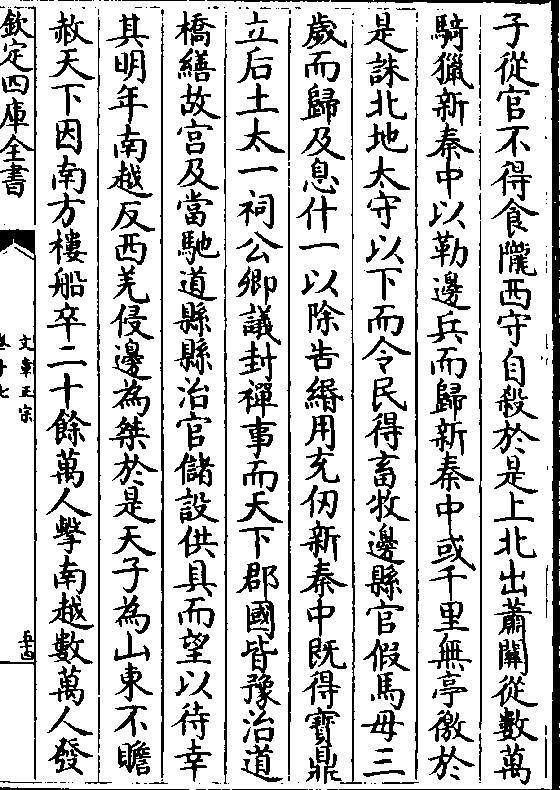 子從官不得食隴西守自殺於是上北出蕭關從數萬
騎獵新秦中以勒邊兵而歸新秦中或千里無亭徼於
是誅北地太守以下而令民得畜牧邊縣官假馬母三
歲而歸及息什一以除告緡用充仞新秦中既得寶鼎
立后土太一祠公卿議封禪事而天下郡國皆豫治道
橋繕故宮及當馳道縣縣治官儲設供具而望以待幸
其明年南越反西羌侵邊為桀於是天子為山東不贍
赦天下因南方樓船卒二十餘萬人擊南越數萬人發
欽定四庫全書
文章正宗
卷十七
五十四